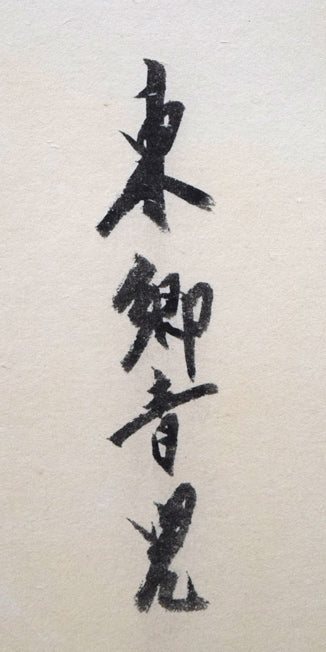 東郷青児